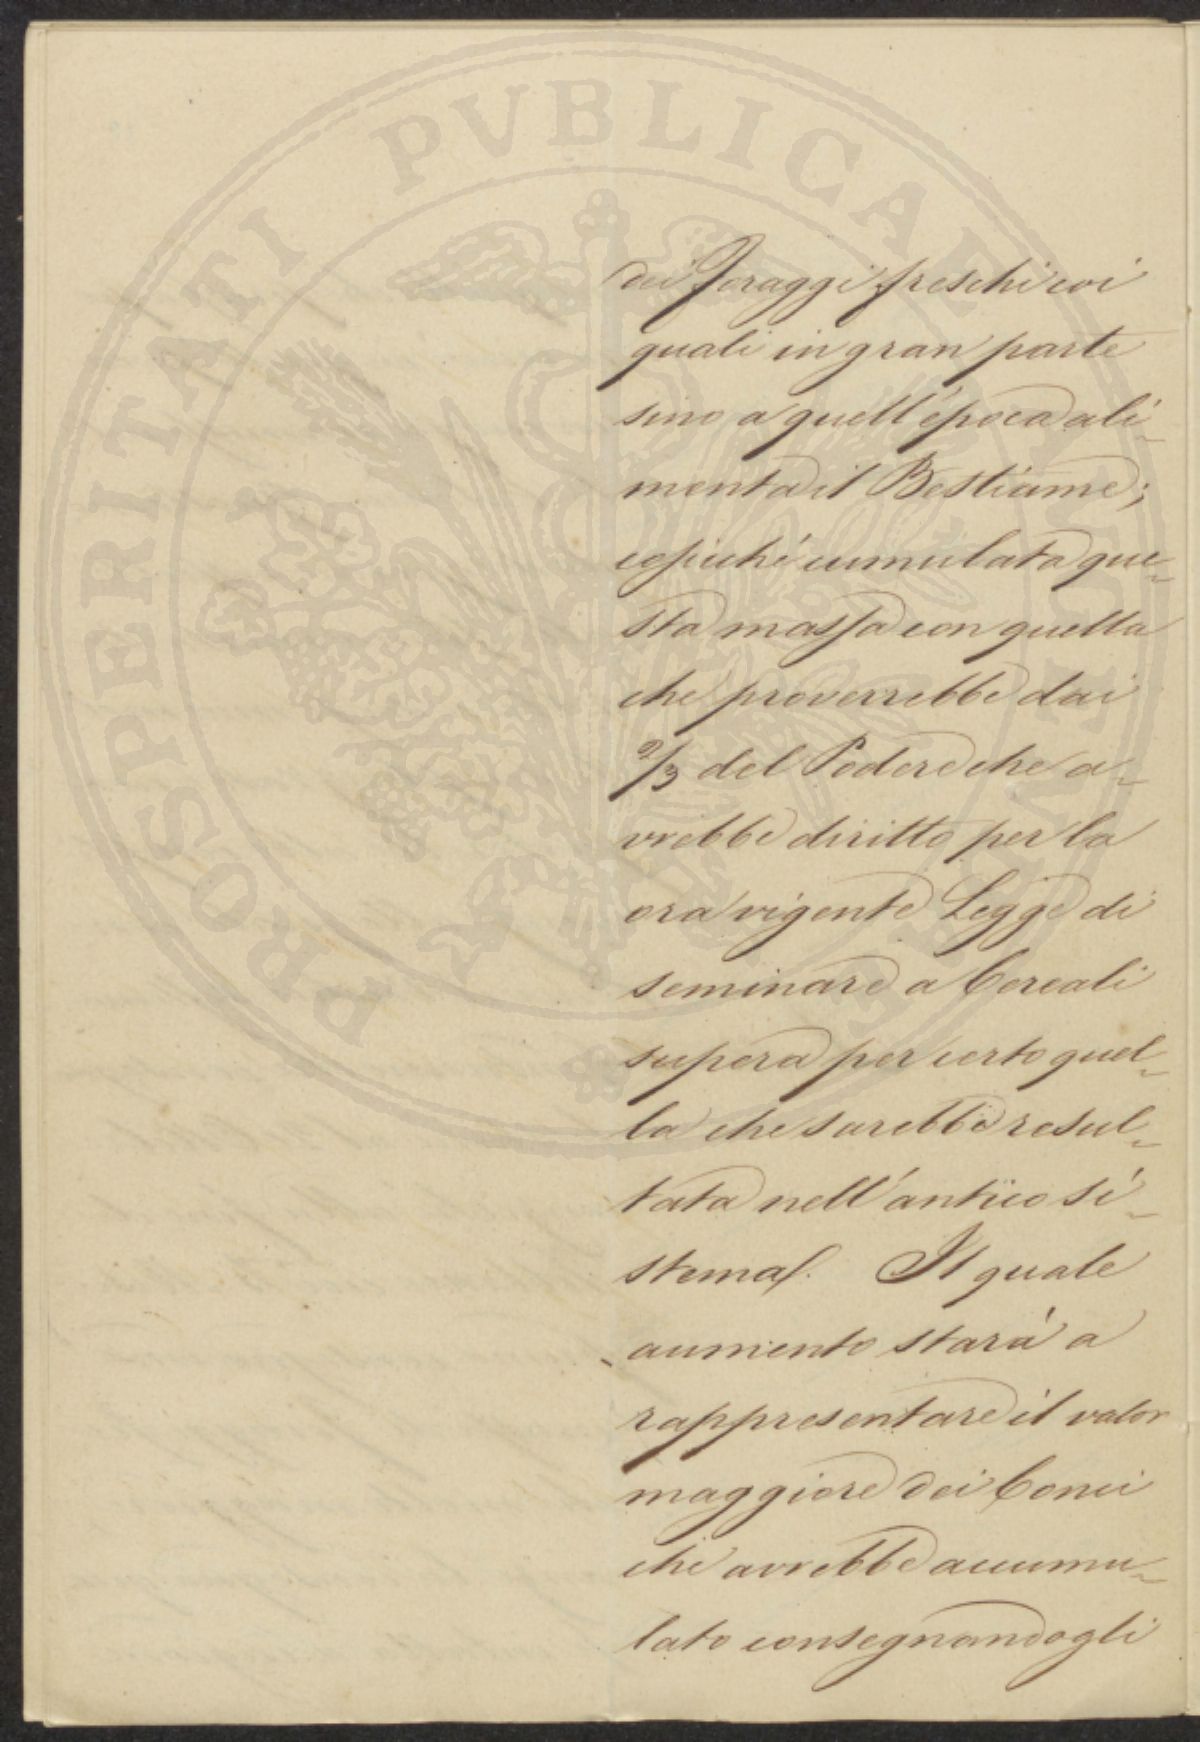 PROSPERITATI PVBLICAE AVGENDAE
dei foraggi freschi coi
quali in gran parte
sino a quell'epoca ali-
menta il Bestiame;
cosicché cumulata que-
sta massa con quella
che proverrebbe dai
2/3 del Podere che a-
vrebbe diritto per la
ora vigente Legge di
seminare a Cereali
supera per certo quel-
la che sarebbe resul-
tata nell'antico si-
stema. Il quale
aumento starà a
rappresentare il valor
maggiore dei Conci
che avrebbe accumu-
lato consegnandogli